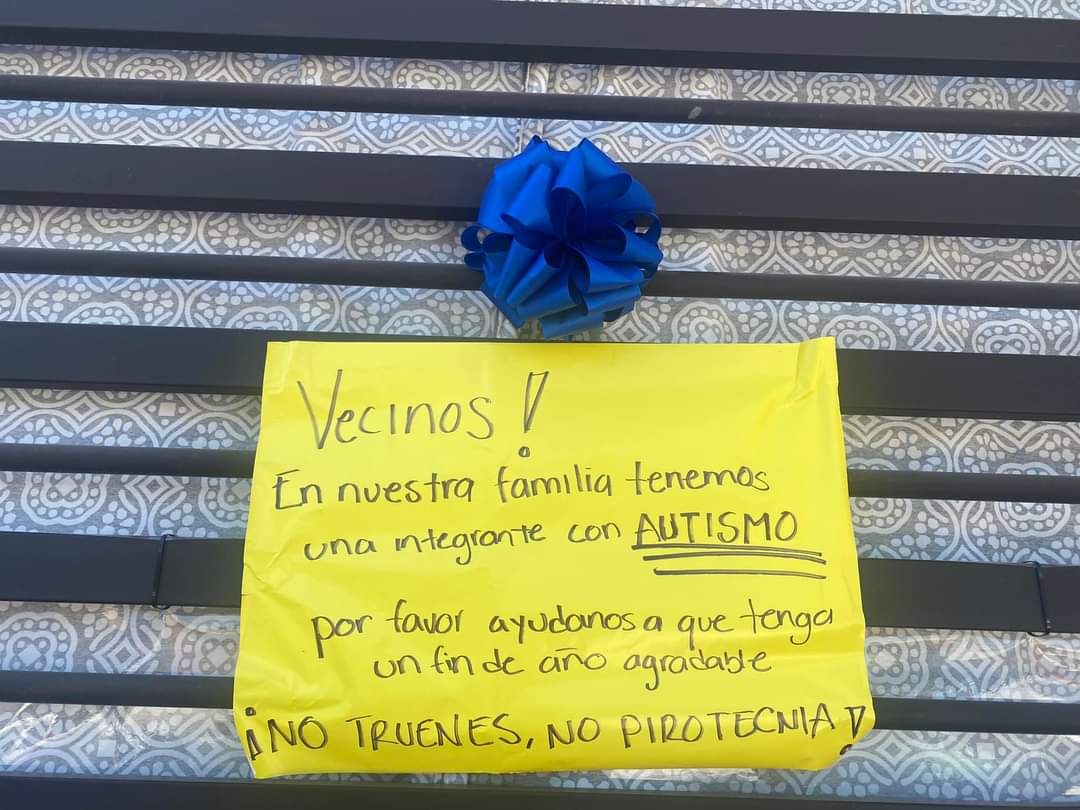 Vecinos!
En nuestra familia tenemos
una integrante con AUTISMO
por favor ayudanos a que tenga
un fin de año agradable
¡NO TRUENES, NO PIROTECNIA!